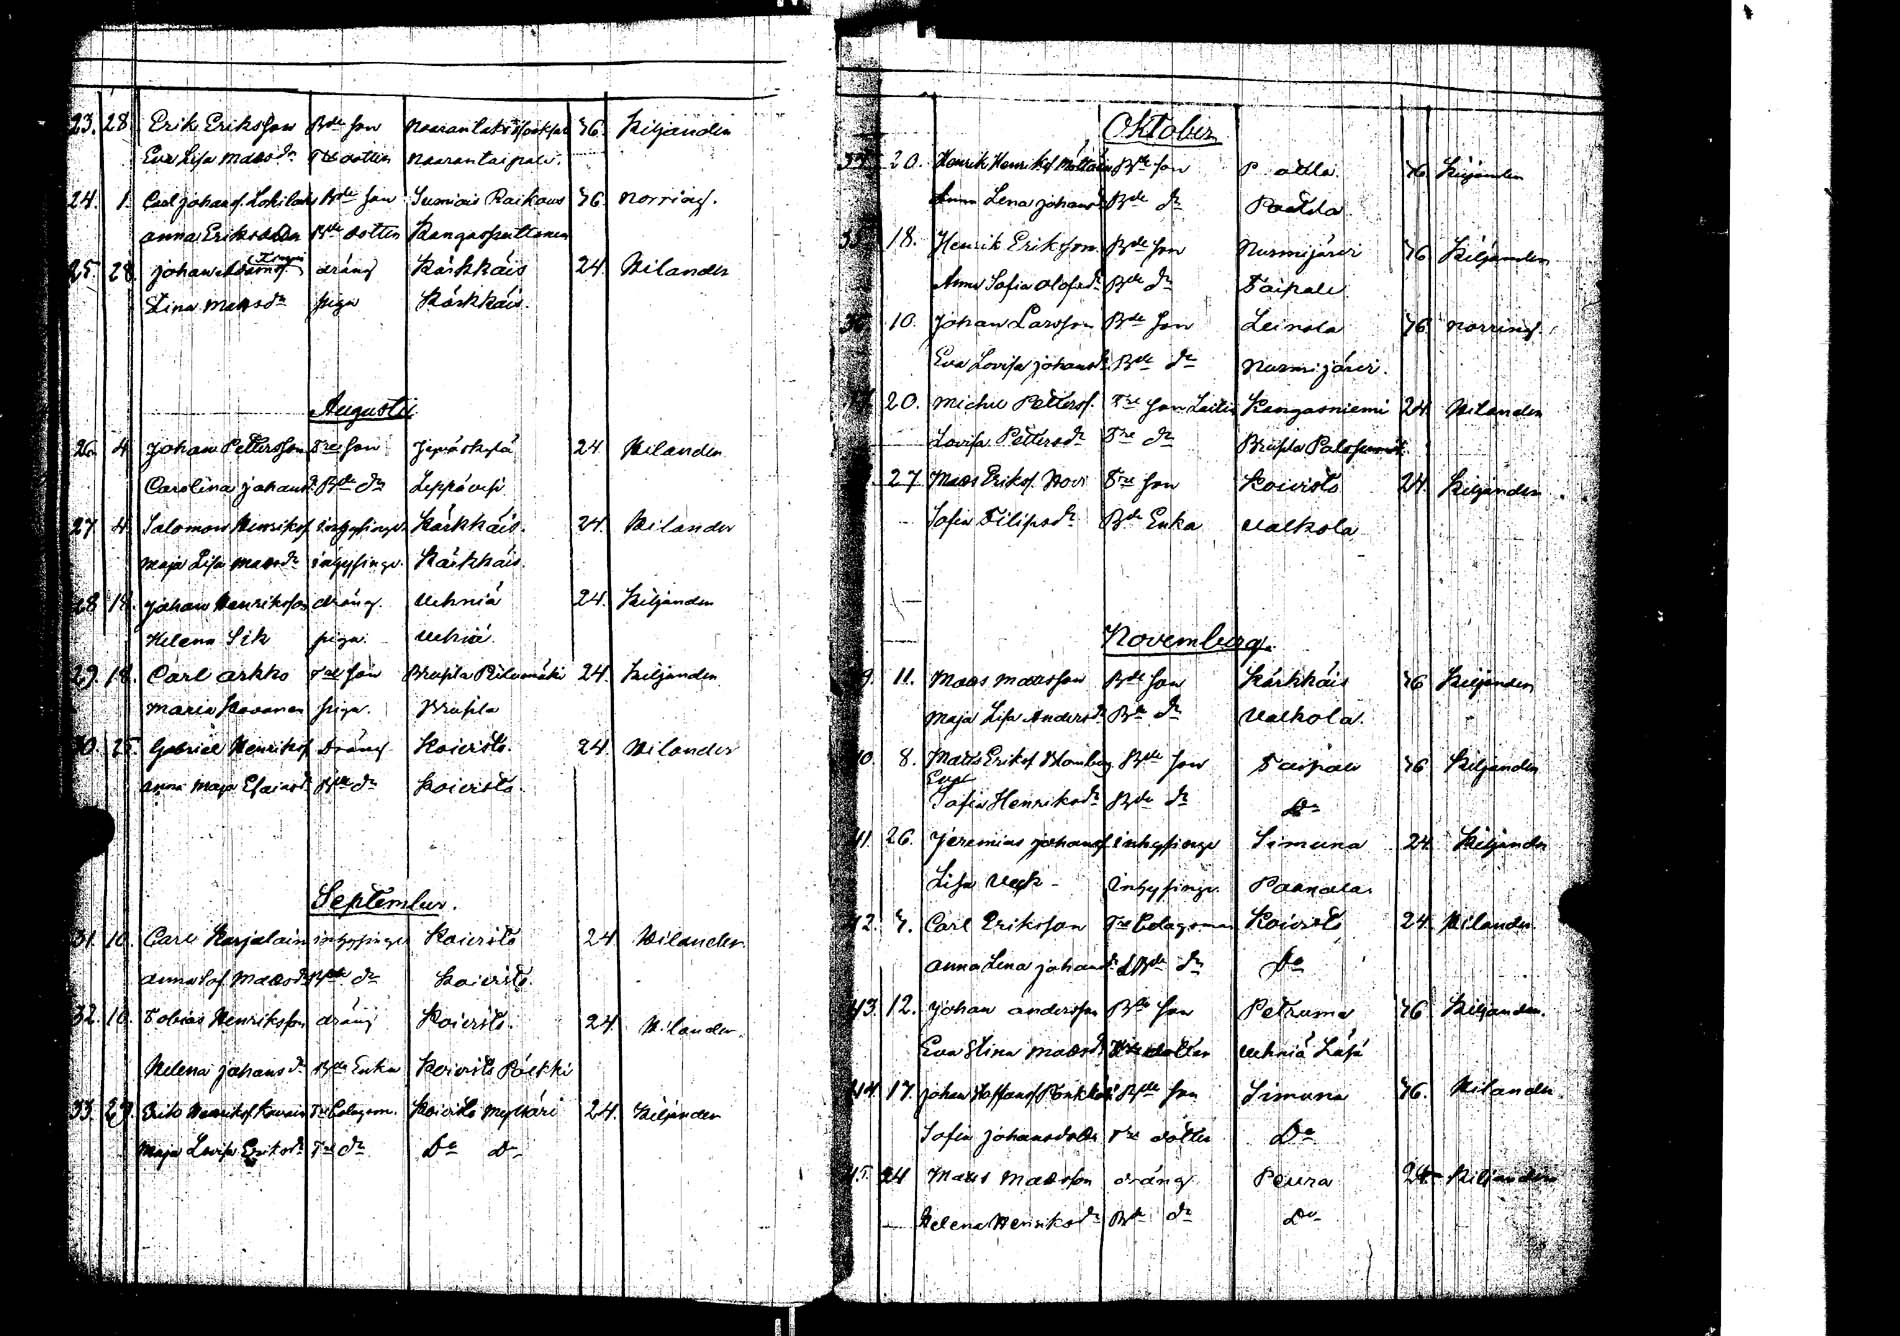 23. 28. Erik Eriksson Bde son 76. Kiljander
Eva Lisa Matsdr Tre dotter Naarantaipale.
24. 1. Carl Johans. Bde son Sumiais Raikaus 76. Norring.
Anna Eriksdotter Bde dotter
25. 28 Johan dräng Kärkkäis 24. Wilander
Stina Matsdr piga Kärkkäis.
Augusti
26. 4 Johan Pettersson Tre son Jyväskylä 24. Wilander
Carolina Johansdr Bde dr Leppävesi
27 4. Salomon Henriksf inhysinge Kärkkäis. 24. Wilander
Maja Lisa Matsdr inhysinge Kärkkäis.
28 18. Johan Henriksson dräng. Vehniä 24. Kiljander
Helena Sik piga Vehniä.
29. 18. Carl Arkko Tre son 24. Kiljander
Maria piga.
30. 25. Gabriel Henriksf Dräng Koivisto. 24. Wilander
Anna Maja Esaiasdr Bde dr Koivisto.
September.
31. 10. Carl Karjalain inhysinge Koivisto 24. Wilander
Anna Sof. Matsdr Bde dr Koivisto.
32. 10. Tobias Henriksson dräng Koivisto. 24. Wilander.
Helena Johansdr Bde Enka Koivisto
33. 29. Henriksf Tre Bolagsm. Koivisto 24. Kiljander
Maja Lovisa Eriksdr Tre dr Do Do
Oktober
20. Henrik Henriksf Bde son 76 Kiljander
Anna Lena Johansdr Bde dr
18. Henrik Eriksson Bde son Nurmijärvi 76 Kiljander
Anna Sofia Olofsdr Bde dr Taipale
10. Johan Larsson Bde son Leinola 76 Norring.
Eva Lovisa Johansdr Bde dr Nurmijärvi.
20. Michel Petterss. Tre son Kangasniemi 24 Wilander
Lovisa Pettersdr Tre dr
27 Mats Eriksf. Tre son Koivisto 24. Kiljander
Sofia Filipsdr Bde Enka Valkola
November.
11. Mats Matsson Bde son Kärkkäis 76 Kiljander
Maja Lisa Andersdr Bde dr Valkola
40. 8. Mats Eriksf Blomberg Bde son Taipale 76 Kiljander
Eva
Sofia Henriksdr Bde dr Do
41. 26. Jeremias Johansf inhysinge Simuna 24. Kiljander
Lisa inhysinge
42. 7. Carl Eriksson Tre Bolagsman Koivisto 24. Wilander
Anna Lena Johansdr Bde dr Do
43. 12. Johan Andersson Bde son Petruma 76 Kiljander.
Eva Stina Matsdr dotter Vehniä
44. 17. Johan Bde son Simuna 76. Wilander
Sofia Johansdotter Tre dotter Do
45. 24 Mats Matsson dräng Peura 24 Kiljander
Helena Henriksdr Bde dr Do